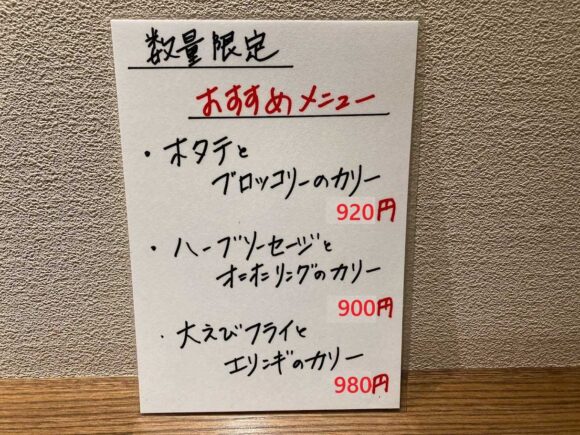 数量限定
おすすめメニュー
・ホタテと
ブロッコリーのカリー
920円
・ハーブソーセージと
オニオンリングのカリー
900円
・大えびフライと
エリンギのカリー
980円